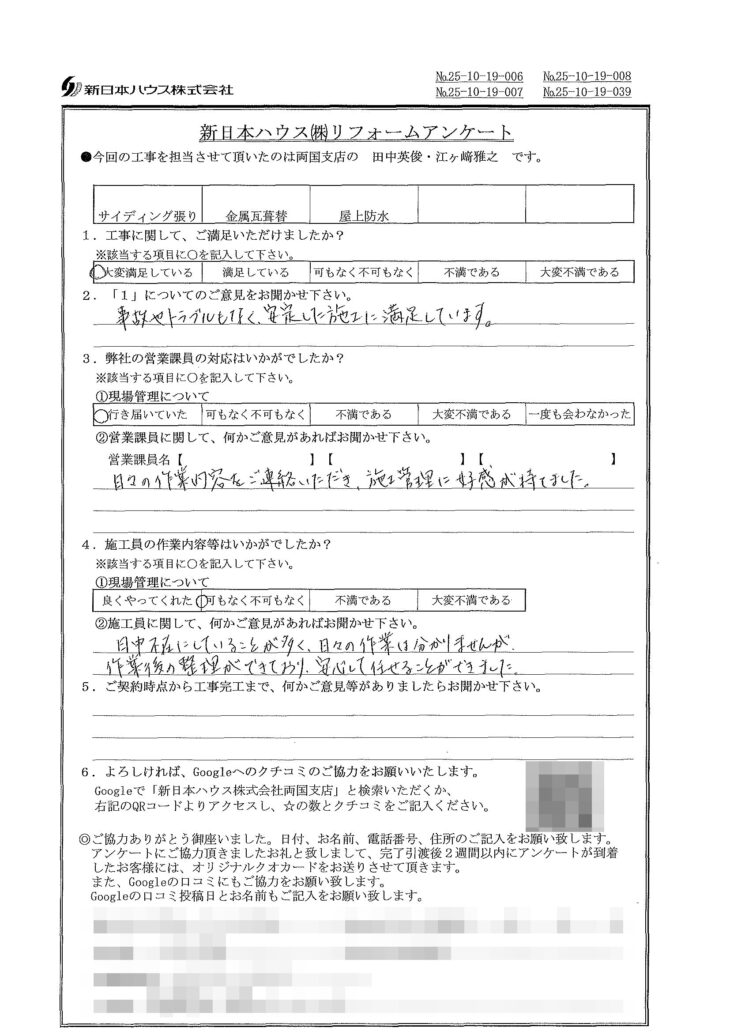 新日本ハウス株式会社
№25-10-19-006 №25-10-19-008
№25-10-19-007 №25-10-19-039
新日本ハウス㈱リフォームアンケート
●今回の工事を担当させて頂いたのは両国支店の 田中英俊・江ヶ﨑雅之 です。
サイディング張り 金属瓦葺替 屋上防水
1．工事に関して、ご満足いただけましたか？
※該当する項目に○を記入して下さい。
大変満足している 満足している 可もなく不可もなく 不満である 大変不満である
2．「1」についてのご意見をお聞かせ下さい。
事故やトラブルもなく、安定した施工に満足しています。
3．弊社の営業課員の対応はいかがでしたか？
※該当する項目に○を記入して下さい。
①現場管理について
行き届いていた 可もなく不可もなく 不満である 大変不満である 一度も会わなかった
②営業課員に関して、何かご意見があればお聞かせ下さい。
営業課員名【 】【 】【 】
日々の作業内容をご連絡いただき、施工管理に好感が持てました。
4．施工員の作業内容等はいかがでしたか？
※該当する項目に○を記入して下さい。
①現場管理について
良くやってくれた 可もなく不可もなく 不満である 大変不満である
②施工員に関して、何かご意見があればお聞かせ下さい。
日中不在にしていることが多く、日々の作業は分かりませんが、
作業後の整理ができており、安心して任せることができました。
5．ご契約時点から工事完工まで、何かご意見等がありましたらお聞かせ下さい。
6．よろしければ、Googleへのクチコミのご協力をお願いいたします。
Googleで「新日本ハウス株式会社両国支店」と検索いただくか、
右記のQRコードよりアクセスし、☆の数とクチコミをご記入ください。
◎ご協力ありがとう御座いました。日付、お名前、電話番号、住所のご記入をお願い致します。
アンケートにご協力頂きましたお礼と致しまして、完了引渡後2週間以内にアンケートが到着
したお客様には、オリジナルクオカードをお送りさせて頂きます。
また、Googleの口コミにもご協力をお願い致します。
Googleの口コミ投稿日とお名前もご記入をお願い致します。